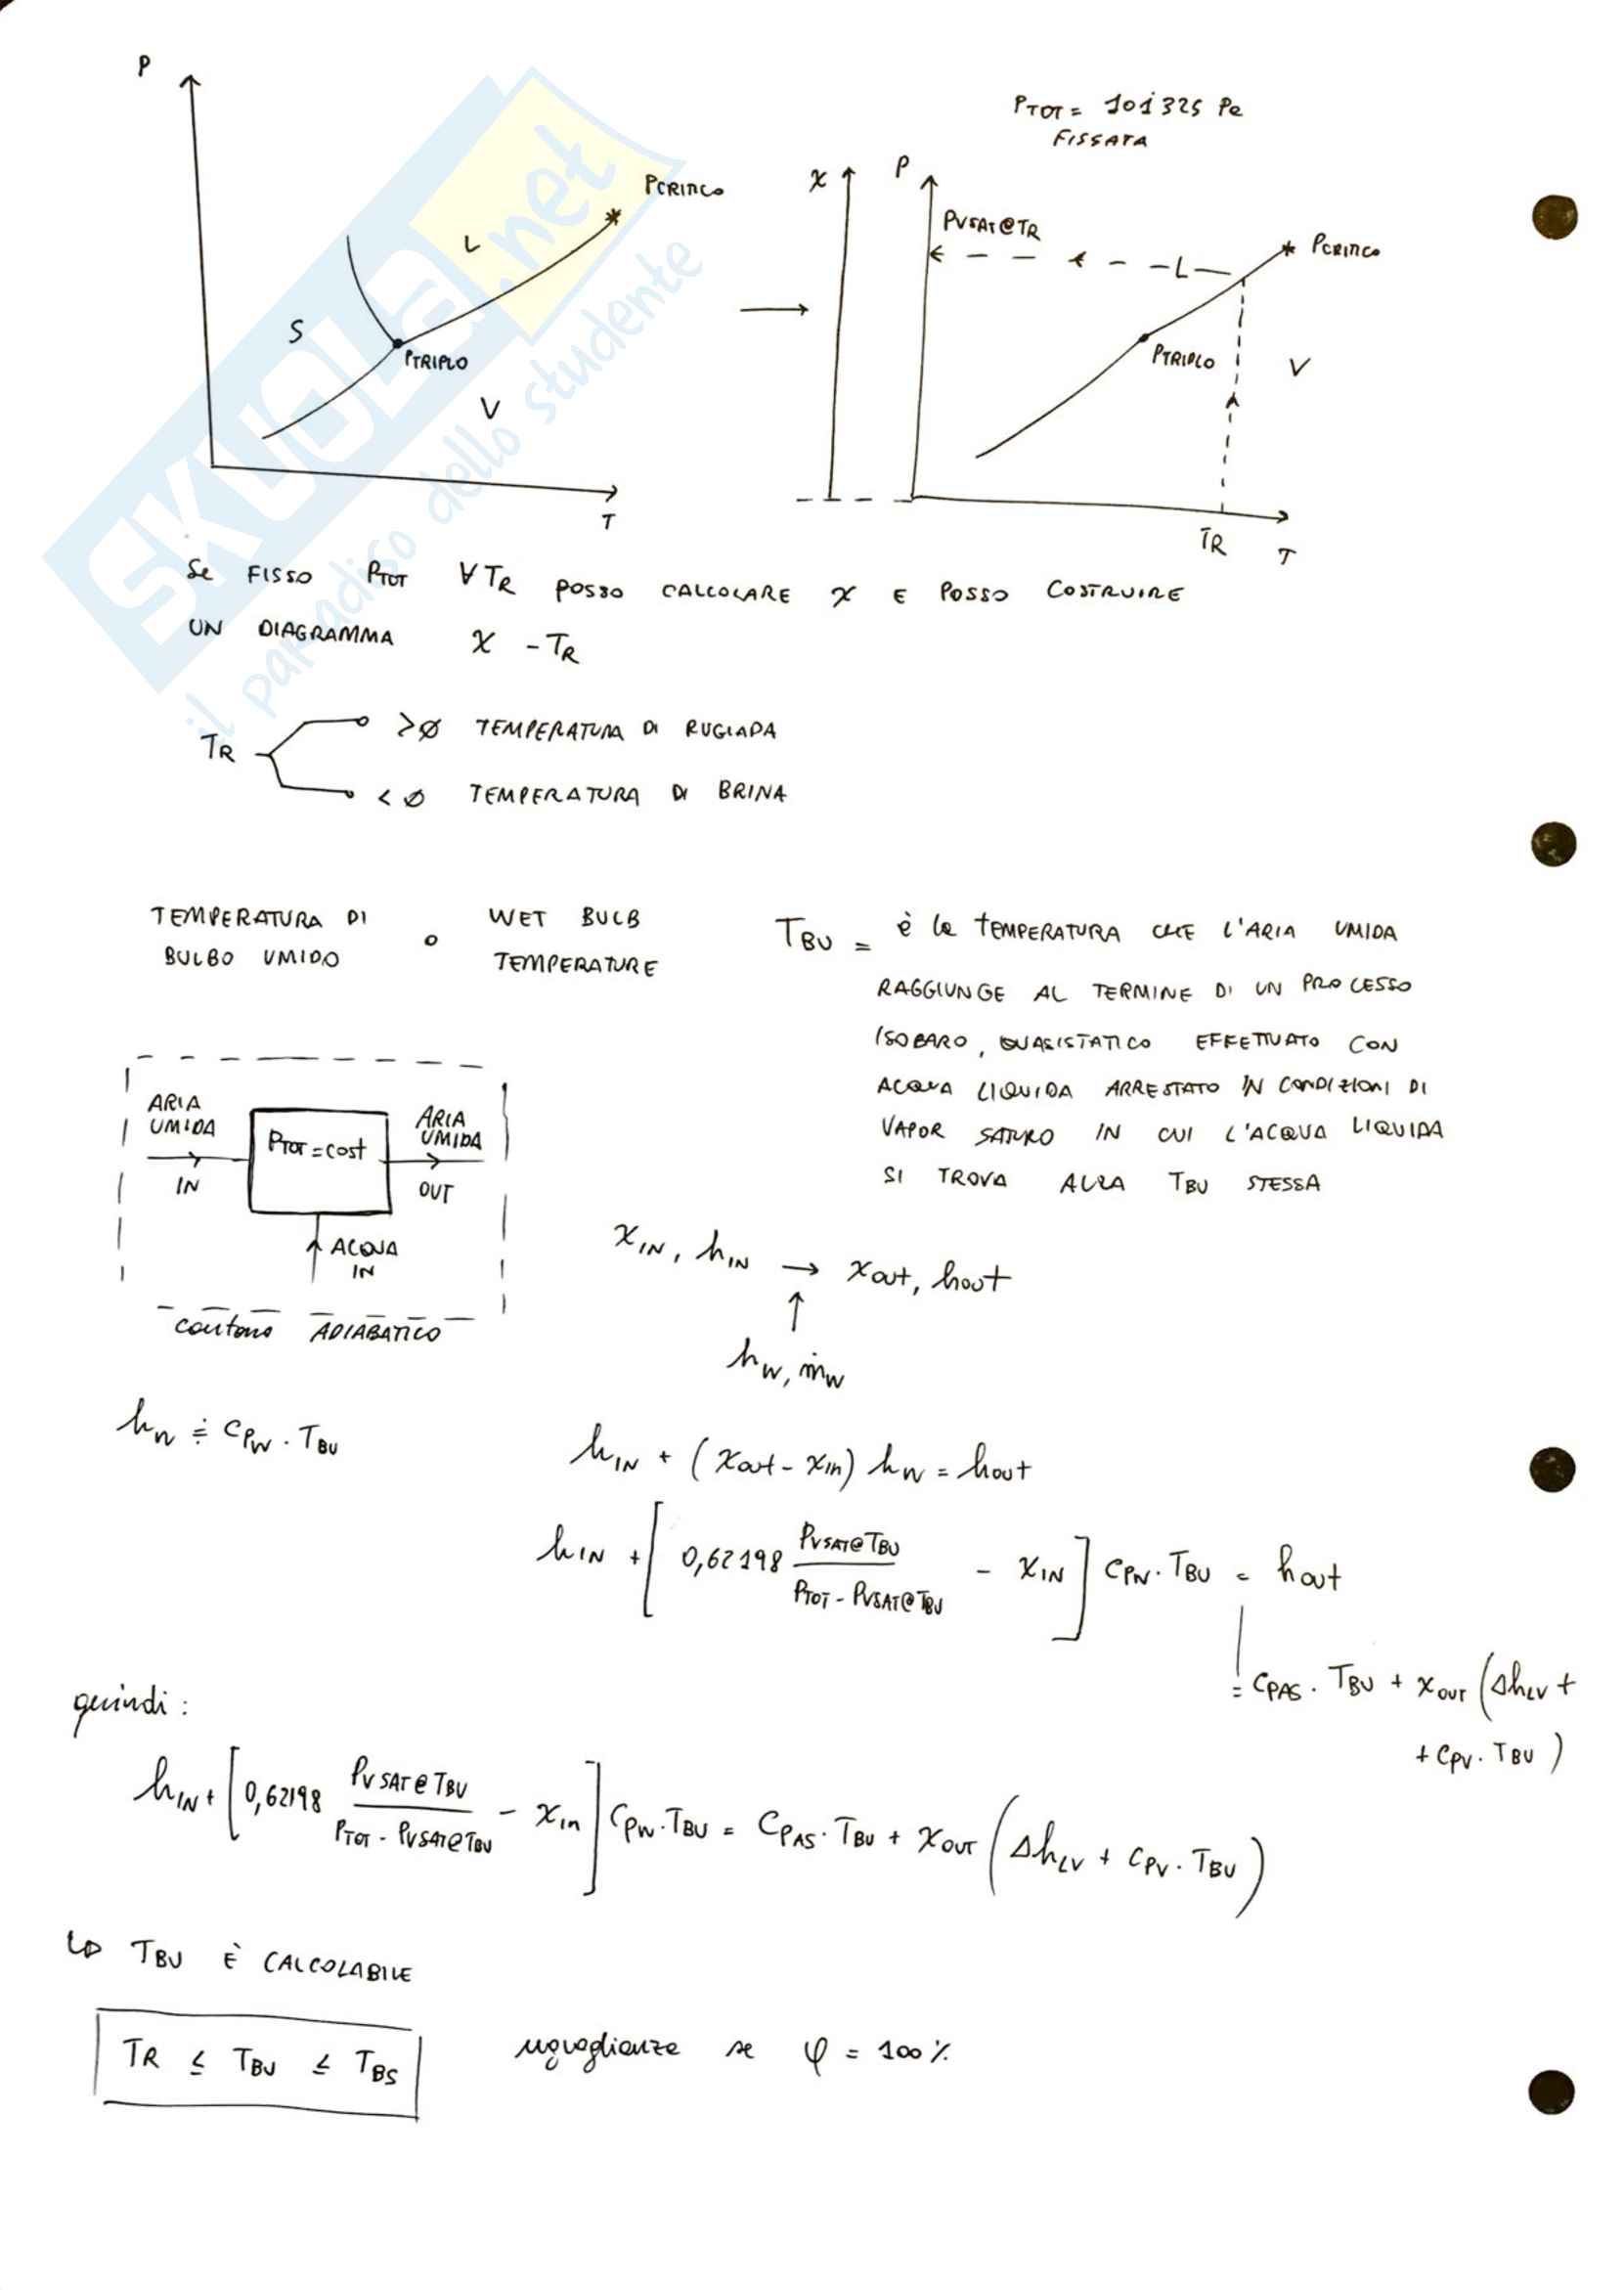 P
PCRITICO
L
S
PTRIPLO
V
T
PTOT = 101325 Pa
FISSATA
x
P
PVSAT@TR
L
PCRITICO
PTRIPLO
V
TR
T
SKUOLA.net
il paradiso dello studente
Se FISSO PTOT ∀TR POSSO CALCOLARE x E POSSO COSTRUIRE
UN DIAGRAMMA x - TR
TR
>∅ TEMPERATURA DI RUGIADA
<∅ TEMPERATURA DI BRINA
TEMPERATURA DI
BULBO UMIDO
o
WET BULB
TEMPERATURE
TBU = è la TEMPERATURA CHE L'ARIA UMIDA
RAGGIUNGE AL TERMINE DI UN PROCESSO
ISOBARO, QUASISTATICO EFFETTUATO CON
ACQUA LIQUIDA ARRESTATO IN CONDIZIONI DI
VAPOR SATURO IN CUI L'ACQUA LIQUIDA
SI TROVA ALLA TBU STESSA
ARIA
UMIDA
IN
PTOT = cost
ARIA
UMIDA
OUT
ACQUA
IN
contorno ADIABATICO
xIN, hIN → xout, hout
↑
hw, ṁw
hw ≐ CPW · TBU
hIN + (xout - xin) hw = hout
hIN + [0,62198 PVSAT@TBU / (PTOT - PVSAT@TBU) - xIN] CPW · TBU = hout
= CPAS · TBU + xOUT (ΔhLV +
+ CPV · TBU)
quindi:
hIN + [0,62198 PVSAT@TBU / (PTOT - PVSAT@TBU) - xin] CPW · TBU = CPAS · TBU + xOUT (ΔhLV + CPV · TBU)
↳ TBU È CALCOLABILE
TR ≤ TBU ≤ TBS
uguaglianze se φ = 100 %